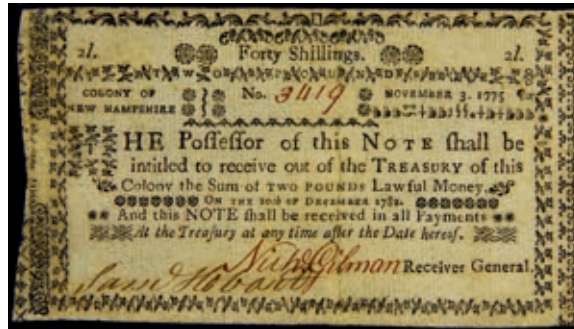 2l. Forty Shillings. 2l.
TWO POUNDS
COLONY OF
NEW HAMPSHIRE
No. 3419
NOVEMBER 3. 1775
THE Poſſeſſor of this NOTE ſhall be
intitled to receive out of the TREASURY of this
Colony the Sum of TWO POUNDS Lawful Money,
ON THE 20th OF DECEMBER 1782.
And this NOTE ſhall be received in all Payments
At the Treaſury at any time after the Date hereof.
Gilman Receiver General.
Hobart